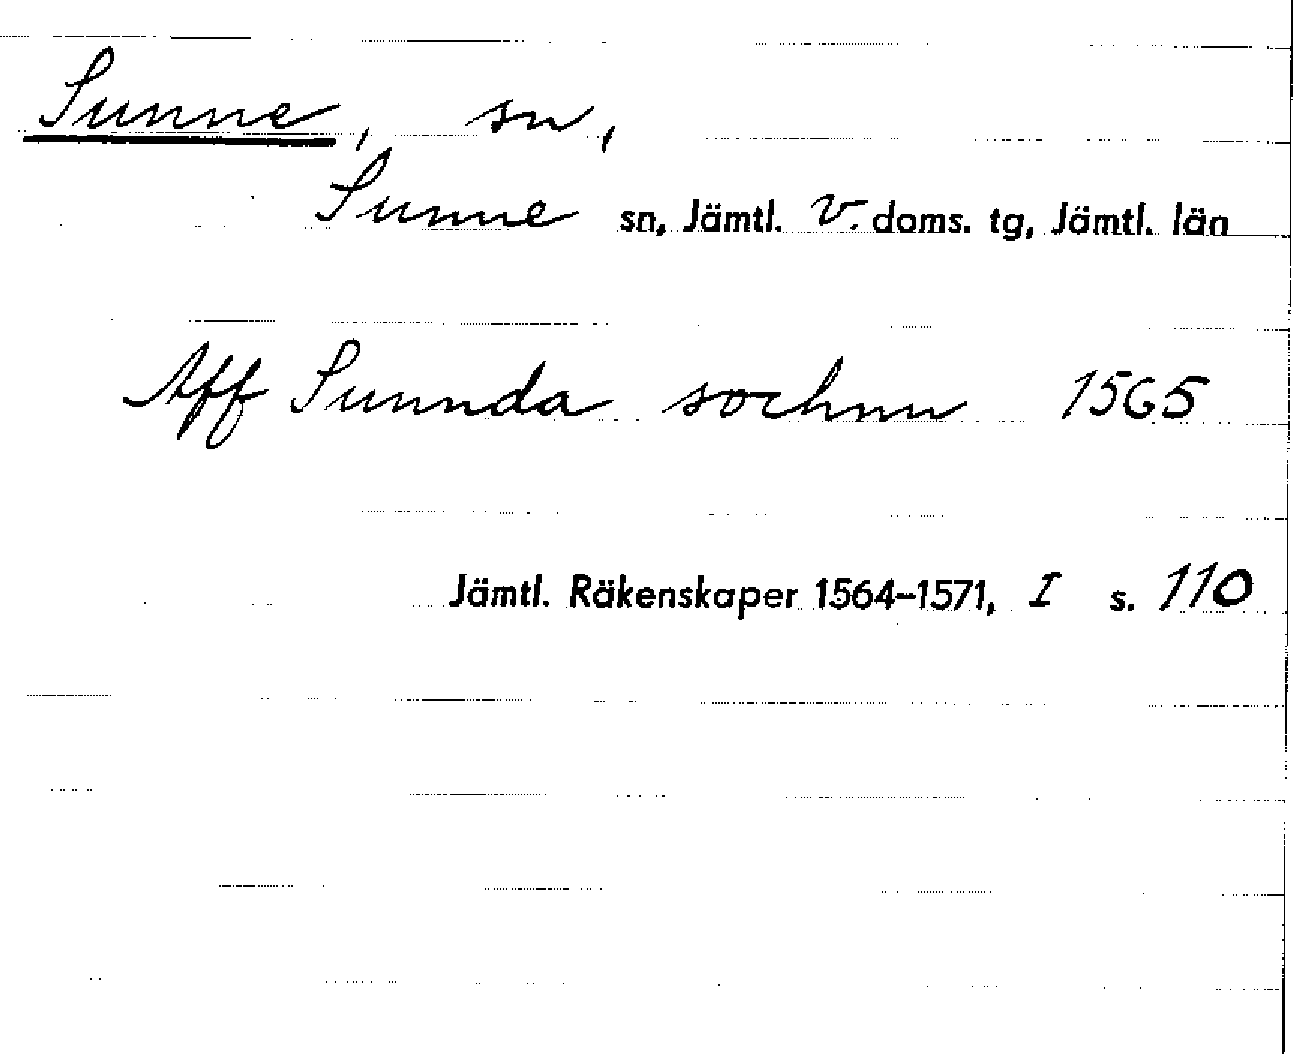 Sunne, sn,
Sunne sn, Jämtl. V. doms. tg, Jämtl. län
Aff Sunnda sochnn 1565
Jämtl. Räkenskaper 1564–1571, I s. 110